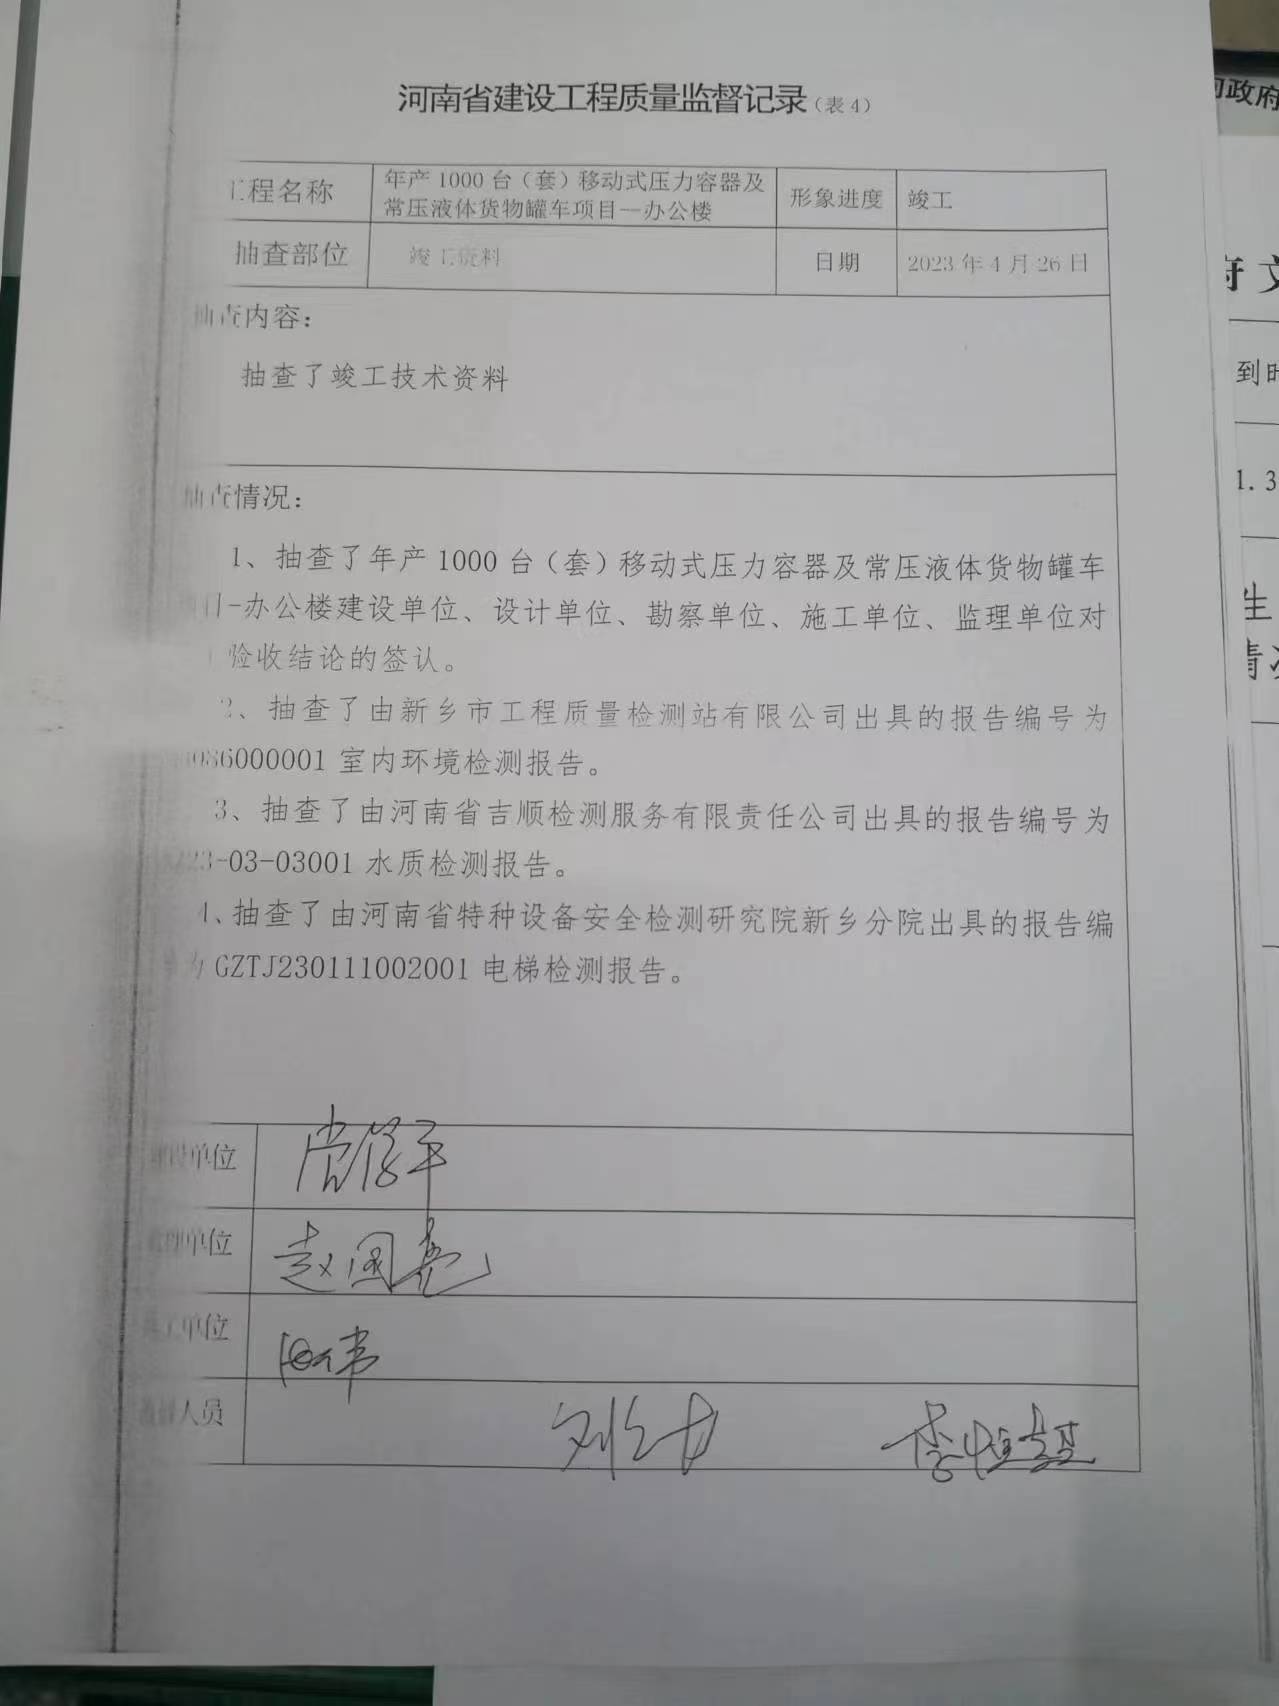 河南省建设工程质量监督记录（表4）
工程名称
年产1000台（套）移动式压力容器及
常压液体货物罐车项目—办公楼
形象进度
竣工
抽查部位
竣工资料
日期
2023年4月26日
抽查内容：
抽查了竣工技术资料
抽查情况：
1、抽查了年产1000台（套）移动式压力容器及常压液体货物罐车
目-办公楼建设单位、设计单位、勘察单位、施工单位、监理单位对
验收结论的签认。
2、抽查了由新乡市工程质量检测站有限公司出具的报告编号为
086000001室内环境检测报告。
3、抽查了由河南省吉顺检测服务有限责任公司出具的报告编号为
23-03-03001水质检测报告。
4、抽查了由河南省特种设备安全检测研究院新乡分院出具的报告编
为GZTJ230111002001电梯检测报告。
建设单位
监理单位
赵国亮
施工单位
监督人员
司政府
府文
到时
1.3
生
情况